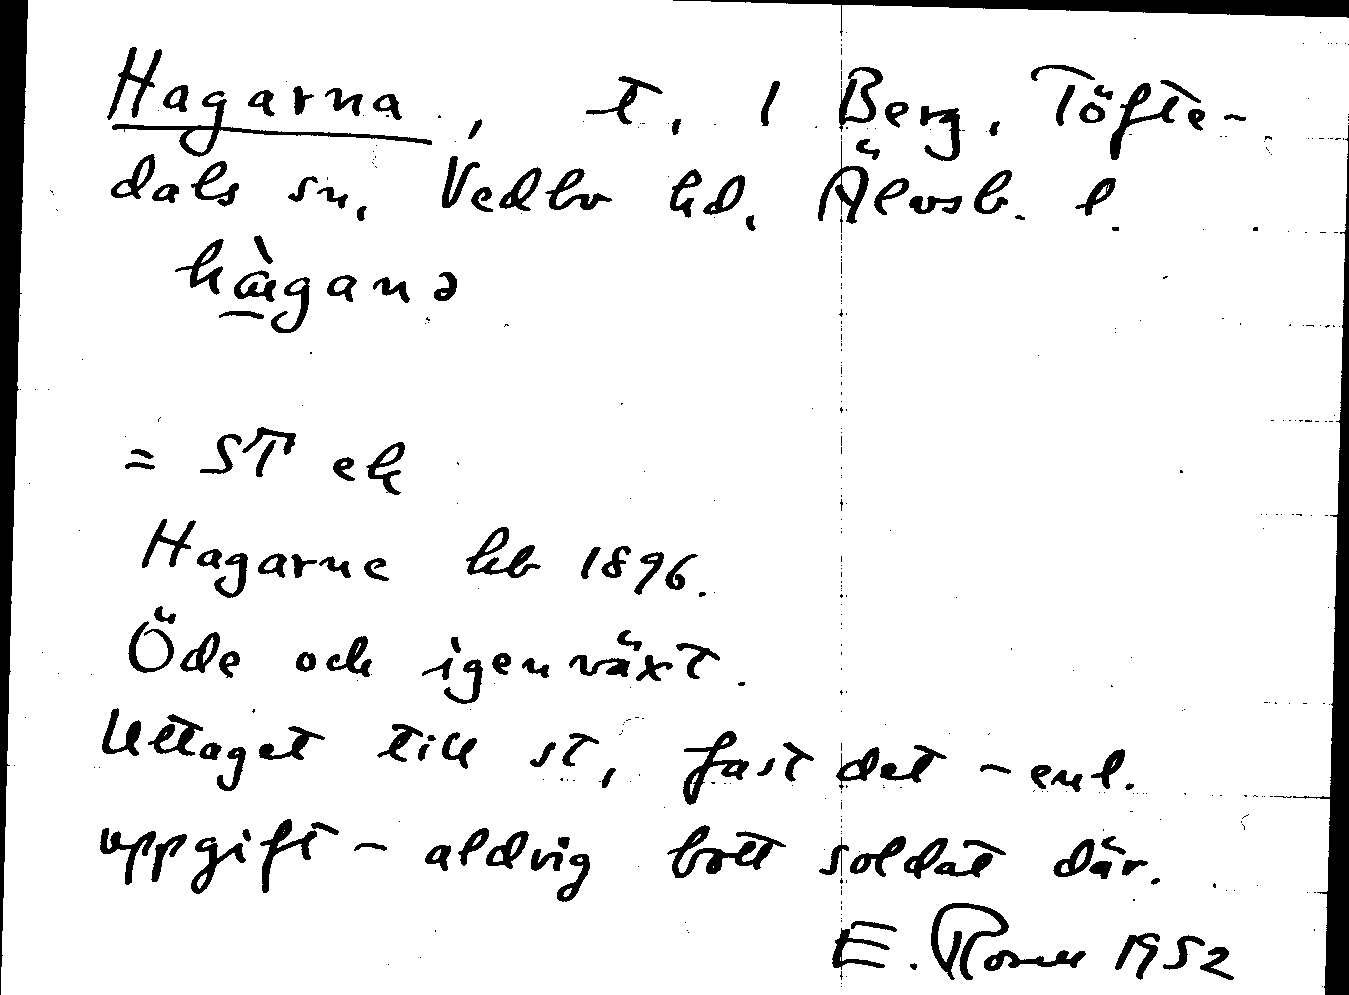 Hagarna, t. 1 Berg, Töfte-
dals sn, Vedbo hd, Älvsb. l.
hàgana
= ST ek
Hagarne kb 1896.
Öde och igenväxt.
Uttaget till st, fast det - enl.
uppgift - aldrig bott soldat där.
E. 1952